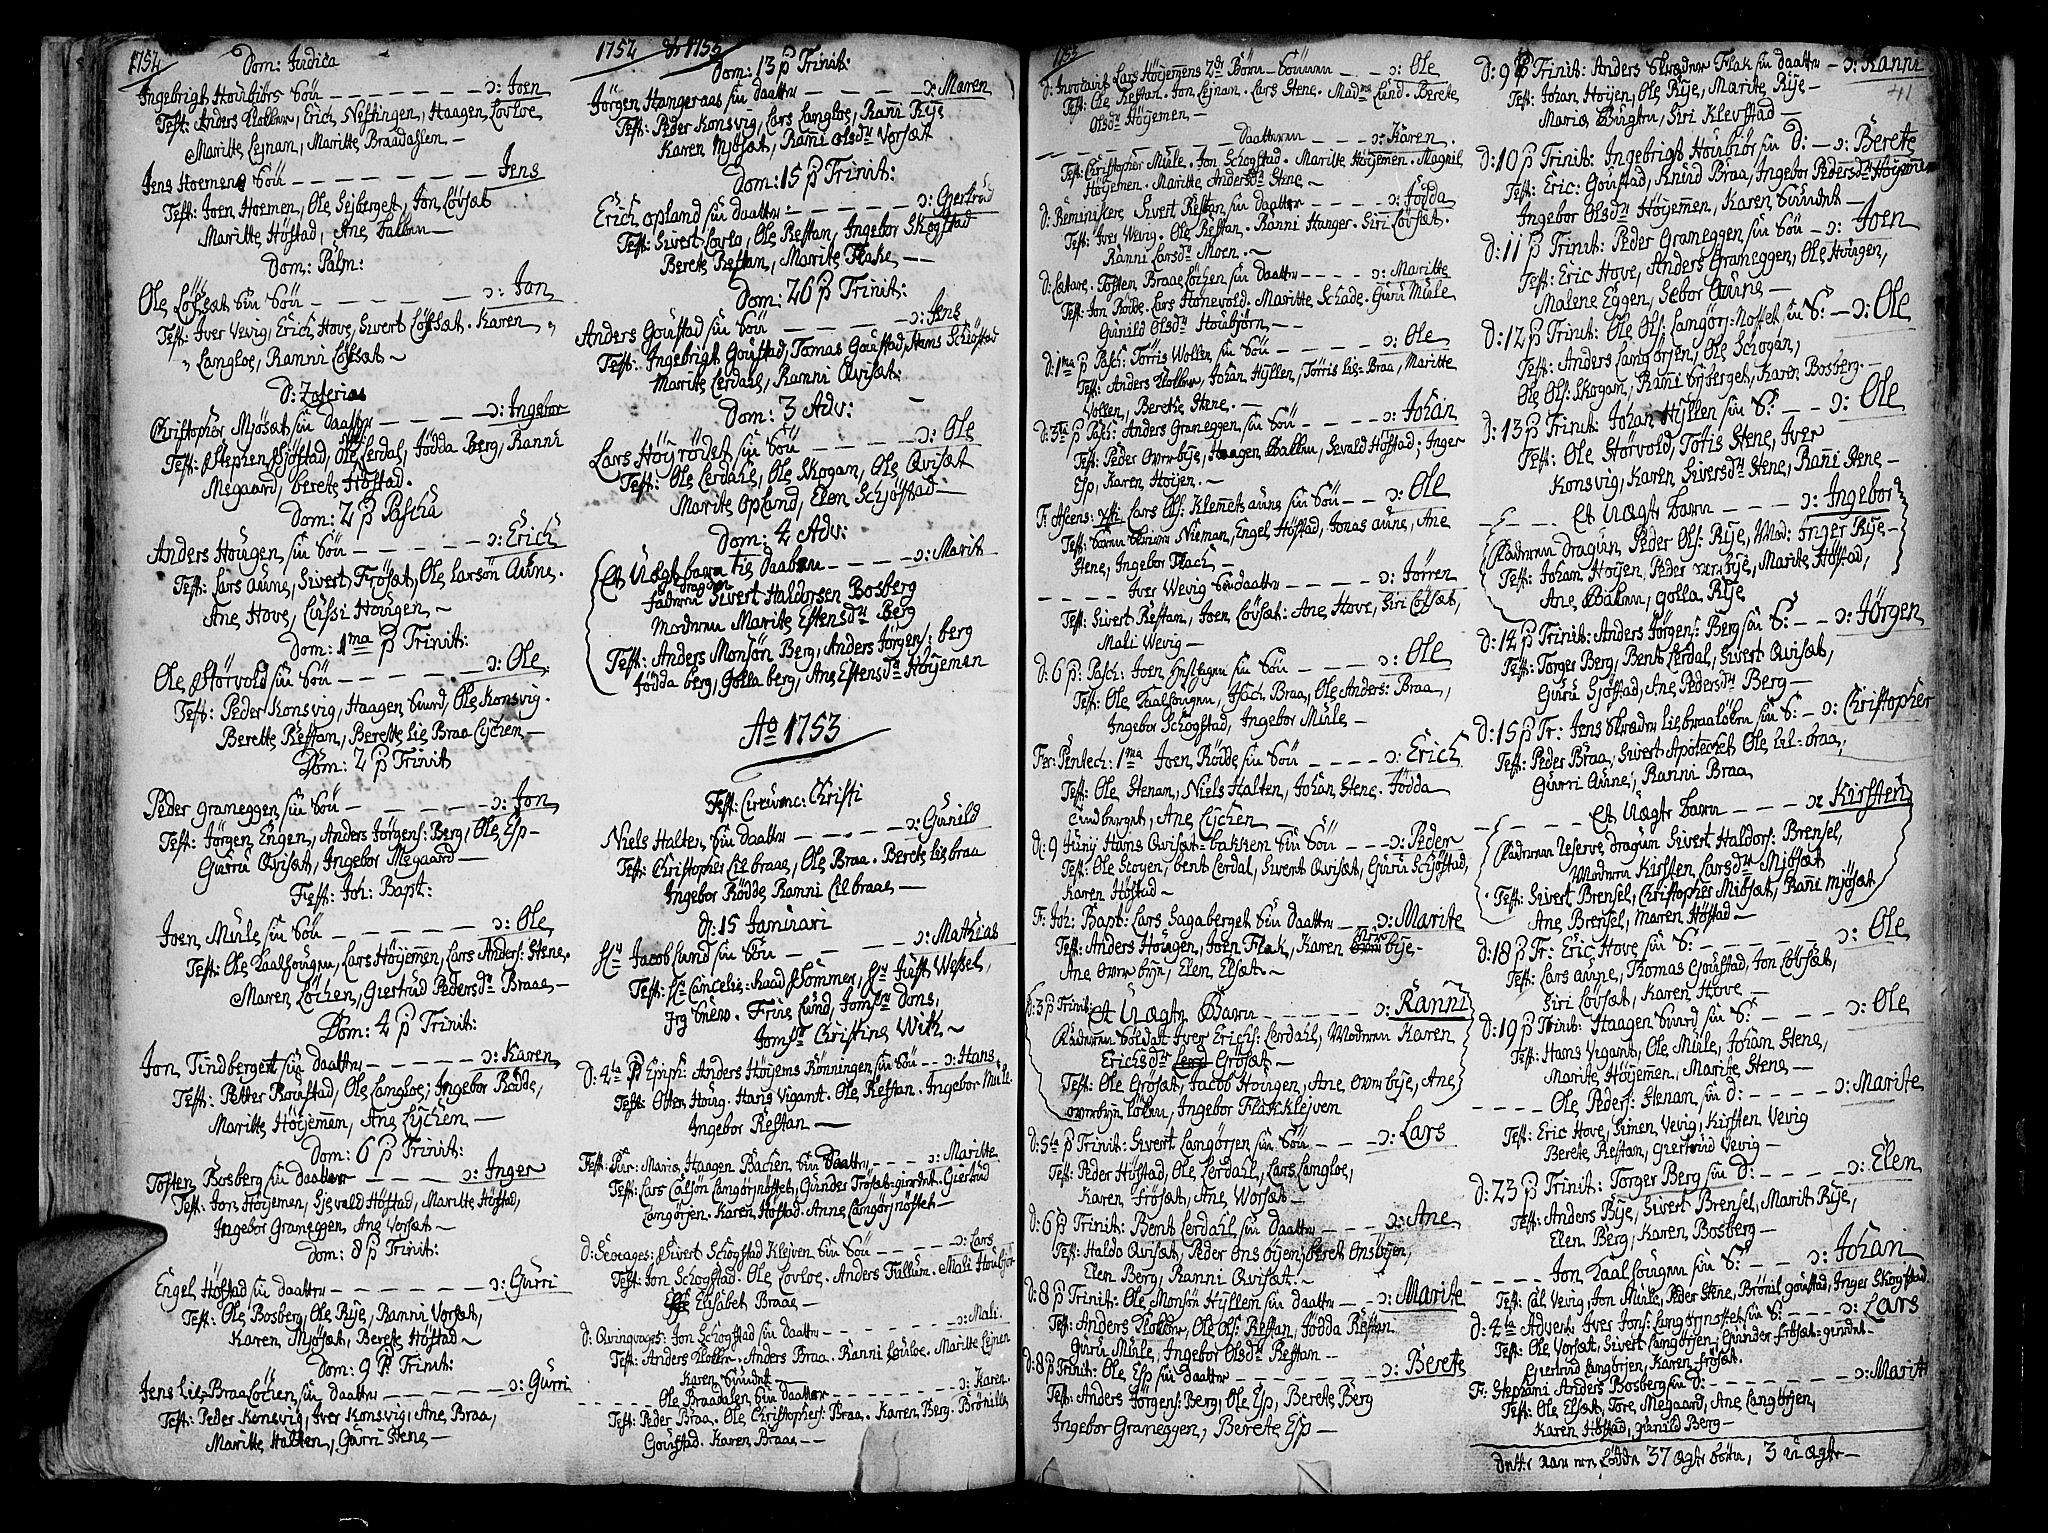 1752
Dom: Judica
Ingebrigt Houbjørs Søn — ɔ: Joen
Test: Anders Kollen, Erich Nestingen, Haagen Lovloe
Maritte Lejnan, Maritte Braadalen —
Jens Hoemens Søn — Jens
Test: Joen Hoemen, Ole Sejberget, Jon Løvsæt
Maritte Høstad, Ane balben —
Dom: Palm:
Ole Løfsæt sin Søn — ɔ: Jon
Test: Iver Vevig, Erich Hove, Sivert Løfsæt. Karen
Langloe, Ranni Løfsæt —
Christopher Mjøsæt sin Daatter — ɔ: Ingebor
Test: Stephen Sjøstad, Ole Lerdal, Jødda Berg, Ranni
Megaard, berete Høstad.
Dom: 2 p Pascha
Anders Hougen sin Søn — ɔ: Erich
Test: Lars Aune, Sivert Frøsæt, Ole Larsøn Aune.
Ane Hove, Cissi Hougen —
Dom: 1ma p Trinit:
Ole Størvold sin Søn — ɔ: Ole
Test: Peder Konsvig, Haagen Sund, Ole Konsvig.
Berette Restan, Berette Lie Braa Lychen —
Dom: 2 p Trinit
Peder Graneggen sin Søn — ɔ: Jon
Test: Jørgen Engen, Anders Jørgens: Berg, Ole Esp —
Gurru Qvisæt, Ingebor Megaard —
Fest: Joh: Bapt:
Joen Mule sin Søn — ɔ: Ole
Test: Ole Kaalsougnen, Lars Høyjemen, Lars Anders: Stene.
Maren Løchen, Giertrud Pedersdr Braae —
Dom: 4 p Trinit:
Jon Tindberget sin daatter — ɔ: Karen
Test: Petter Roustad, Ole Langloe, Ingebor Rødde,
Maritte Høyjemen, Ane Lychen —
Dom: 6 p Trinit:
Tosten Bosberg sin daatter — ɔ: Inger
Test: Jon Høyjemen, Sievald Høstad, Maritte Høstad,
Ingebor Graneggen, Ane Vorsæt —
Dom: 8 p Trinit:
Engel Høstad sin daatter — ɔ: Gurri
Test: Ole Bosberg, Ole Rije, Ranni Vorsæt,
Karen Mjøsæt, Berete Høstad —
Dom: 9 p Trinit:
Jens Lil-Braa Løchen sin daatter — ɔ: Gurri
Test: Peder Konsvig, Iver Konsvig, Ane Braa,
Maritte Halten, Gurri Stene —
1752 & 1753
Dom: 13 p Trinit:
Jørgen Hangeraas sin daatter — ɔ: Maren
Test: Peder Konsvig, Lars Langloe, Ranni Rije
Karen Mjøsæt, Rani Olsdr Vorsæt
Dom: 15 p Trinit:
Erich opland sin daatter — ɔ: Giertrud
Test: Sivert Lovlo, Ole Restan, Ingebor Skogstad
Berete Restan, Marite Flake —
Dom: 26 p Trinit:
Anders Goustad sin Søn — ɔ: Jens
Test: Ingebrigt Goustad, Tomas Goustad, Hans Schiøstad
Marite Lerdahl, Ranni Qvisæt:
Dom: 3 Adv:
Lars Høyrødet sin Søn — ɔ: Ole
Test: Ole Lerdahl, Ole Skogan, Ole Qvisæt
Marite Opland, Elen Schjøstad —
Dom: 4 Adv:
Et Uægt barn til Daaben — ɔ: Marit
faderen dragon Sivert Haldorsen Bosberg
Moderen Marite Estensdr Berg
Test: Anders Monsøn Berg, Anders Jørgens: berg
Jødda berg, Golla berg, Ane Estensdr Høyjeman
Ao 1753
Fest: Circumc: Christi
Niels Halten sin daatter — ɔ: Gunild
Test: Christopher Lilbraae, Ole Braa. Berete Lie braa
Ingebor Rødde, Ranni Lilbraae —
d: 15 Januari
Hr Jacob Lund sin Søn — ɔ: Mathias
Test: Hr Cancelie-Raad Sommer, Hr Just Wessel,
Jomfr Christine With —
D: 4ta p Epiph: Anders Høyjems Rønningen sin Søn — ɔ: Hans
Test: Otten Houg. Hans Vigant. Ole Restan. Ingebor Mule.
Ingebor Restan —
Fest: Pur: Mariæ Haagen Bachen sin Daatter — ɔ: Maritte
Test: Lars Calsøn Langørjnøstet, Gunder Frøsæt-grindet. Giertrud
Langørjen. Karen Høstad. Anne Langørjnøstet —
D: Sexages: Sivert Schogstad Klejven sin Søn — ɔ: Lars
Test: Jon Schogstad. Ole Lovloe. Anders Fullum. Mali Houbjør
Elisabet Braae —
D: Qvinqvages: Jon Schogstad sin daatter — ɔ: Mali.
Test: Anders Kollen. Anders Braa. Ranni Louloe. Maritte Lejnen
Karen Sundet —
Ole Braadalen sin Daatter — ɔ: Karen.
Test: Peder Braa. Ole Christophers: Braa. Karen Berg. Brønilla
Goustad. Karen Braae —
1753
D: Invocavit Lars Høyjemens 2de Børn — Sønnen — ɔ: Ole
Test: Ole Restan. Jon Lejnan. Lars Stene. Madme Lund. Berete
Olsdr Høyjemen —
Daatteren — ɔ: Karen.
Test: Christopher Mule. Jon Schogstad. Maritte Høyjemen. Magnil
Høyjemen. Maritte Andersdr Stene —
D: Reminiscere Sivert Restan sin daatter — ɔ: Jødda
Test: Iver Vevig. Ole Restan. Ranni Hanger. Siri Løvsæt.
Ranni Larsdr Moen. —
D: Lætare. Tosten Braae Løchen sin daatter — ɔ: Maritte
Test: Jon Rødde. Lars Hornevold. Maritte Schade. Guru Mule
Gunild Olsdr Houbjørn —
D: 1ma p Pasc: Tørris Wollen sin Søn — ɔ: Ole
Test: Anders Kollen, Johan Hyllen, Tørris Lil-Braa, Maritte
Vollen, Berette Stene. —
D: 3tia p Pasc: Anders Graneggen sin Søn — ɔ: Johan
Test: Peder Overbye, Haagen Balbu, Sevald Høstad; Inger
Esp, Karen Høijen. —
F: Ascens: Xsti Lars Ols: Klemets aune sin Søn — ɔ: Ole
Test: Søren Skriver Nieman, Engel Høstad, Jonas Aune, Ane
Stene, Ingebor Flach —
Iver Wevig sin daatter — ɔ: Jørren
Test: Sivert Restan, Joen Løvsæt: Ane Hove, Siri Løvsæt,
Mali Wevig —
D: 6 p: Pasch: Joen Hestflagen sin Søn — ɔ: Ole
Test: Ole Kaalsougnen, Isach Braa, Ole Anders: Braa,
Ingebor Schogstad, Ingebor Mule —
Fer: Pentech: 1ma Joen Rødde sin Søn — ɔ: Erich
Test: Ole Stenam, Niels Halten, Johan Stene. Jødda
Tindberget, Ane Lychen —
D: 9 Junij Hans Qvisæt-bakken sin Søn — ɔ: Peder
Test: Ole Scoyen, bent Lerdal, Sivert Qvisæt, Guru Schjøstad,
Karen Høstad —
F: Joh: Bapt: Lars Sagaberget sin daatter — ɔ: Marite
Test: Anders Hougen, Joen Flak, Karen bije —
Ane Over bijn, Elen Elsæt. —
D: 3 p Trinit: Et Uægte Barn — ɔ: Ranni
Faderen Soldat Iver Erichs: Lerdahl, Moderen Karen
Erichsdr Grøsæt —
Test: Ole Grøsæt, Jacob Hougen, Ane Overbije, Ane
Overbijn løben, Ingebor Flakklejven
D: 5ta p Trinit: Sivert Langørjen sin Søn — ɔ: Lars
Test: Peder Høstad, Ole Lerdahl, Lars Langloe,
Karen Frøsæt, Ane Worsæt —
D: 6 p Trinit: Bent Lerdahl sin Daatter — ɔ: Ane
Test: Haldo Qvisæt, Peder Onsøijen, Beret Onsøijen,
Elen Berg, Ranni Qvisæt. —
D: 8 p Trinit: Ole Monsøn Hyllem sin daatter — ɔ: Marite
Test: Anders Kolden, Ole Ols: Restan, Jødda Restan
Guru Mule, Ingebor Olsdr Restan —
D: 8 p Trinit: Ole Esp sin daatter — ɔ: Berete
Test: Anders Jørgens: Berg, Ole Esp, Berete Berg
Ingebor Graneggen, Berete Esp —
D: 9 p Trinit: Anders Skræder Flak sin daatter — ɔ: Ranni
41
Test: Johan Høijen, Ole Rije, Marite Rije —
Siri Klevstad —
D: 10 p Trinit: Ingebrigt Houbiør sin D: — ɔ: Berete
Test: Eric: Goustad, Knud Braa, Ingebor Pedersdr Høyjemen
Ingebor Olsdr Høijemen, Karen Sundet —
D: 11 p Trinit: Peder Graneggen sin Søn — ɔ: Joen
Test: Eric Hove, Anders Graneggen, Ole Hougen,
Malene Eggen, Sebor Aune —
D: 12 p Trinit: Ole Ols: Langørj-Nostet sin S: — ɔ: Ole
Test: Anders Langørjen, Ole Schogan,
Ole Ols: Skogan, Ranni Sijberget, Karen Bosberg. —
D: 13 p Trinit: Johan Hyllen sin S: — ɔ: Ole
Test: Ole Størvold, Totis Stene, Iver
Konsvig, Karen Siversdr Stene, Ranni Stene —
Et Uægte barn — ɔ: Ingebor
Faderen Dragun Peder Ols: Rije, Mod: Inger Rije —
Test: Johan Høijen, Peder overbije, Marite Høstad,
Ane Balbu, golla Rije
D: 14 p Trinit: Anders Jørgens: Berg sin S: — ɔ: Jørgen
Test: Torger Berg, Bent Lerdal, Sivert Qvisæt,
Guru Sjøstad, Ane Pedersdr Berg —
D: 15 p Tr: Jens Skræder Lilbraaløben sin S: — ɔ: Christopher
Test: Peder Braa, Sivert Apotechet, Ole Lil-braa,
Gurri Aune, Ranni Braa
Et Uægte barn — ɔ: Kirsten
Faderen Reserve dragun Sivert Haldors: Brensel,
Moderen Kirsten Larsdr Mjøsæt
Test: Sivert Brensel, Christopher Miøsæt, Ranni Mjøsæt
Ane Brensel, Maren Høstad —
D: 18 p Tr: Eric Hove sin S: — ɔ: Ole
Test: Lars Aune, Thomas Goustad, Jon Løvsæt,
Siri Løvsæt, Karen Hove —
D: 19 p Trinit: Haagen Sund sin S: — ɔ: Ole
Test: Hans Vigant, Ole Mule, Johan Stene,
Marite Høijemen, Marite Stene —
Ole Peders: Stenam sin D: — ɔ: Marite
Test: Eric Hove, Simen Vevig, Kirsten Vevig
Berete Restan, Giertrud Vevig —
D: 23 p Trinit: Torger Berg sin D: — ɔ: Elen
Test: Anders Bije, Sivert Brensel, Marit Rije,
Elen Berg, Karen Bosberg —
Jon Kaalsougnen sin S: — ɔ: Johan
Test: Cal Vevig, Jon Mule, Peder Stene, Brønil Goustad, Inger Skogstad
D: 4ta Advent Iver Jons: Langørjnøstet sin S: — ɔ: Lars
Test: Ole Vorsæt, Sivert Langørjen, Gunder Frøsæt-grindet —
Giertrud Langørjen, Karen Frøsæt.
F: Stephani Anders Bosberg sin D: — ɔ: Marit
Test: Ole Elsæt, Tore Megaard, Ane Langørjen,
Karen Høstad, Gunild Berg —
dette aar ere fødde 37 ægte børn, 3 uægte —